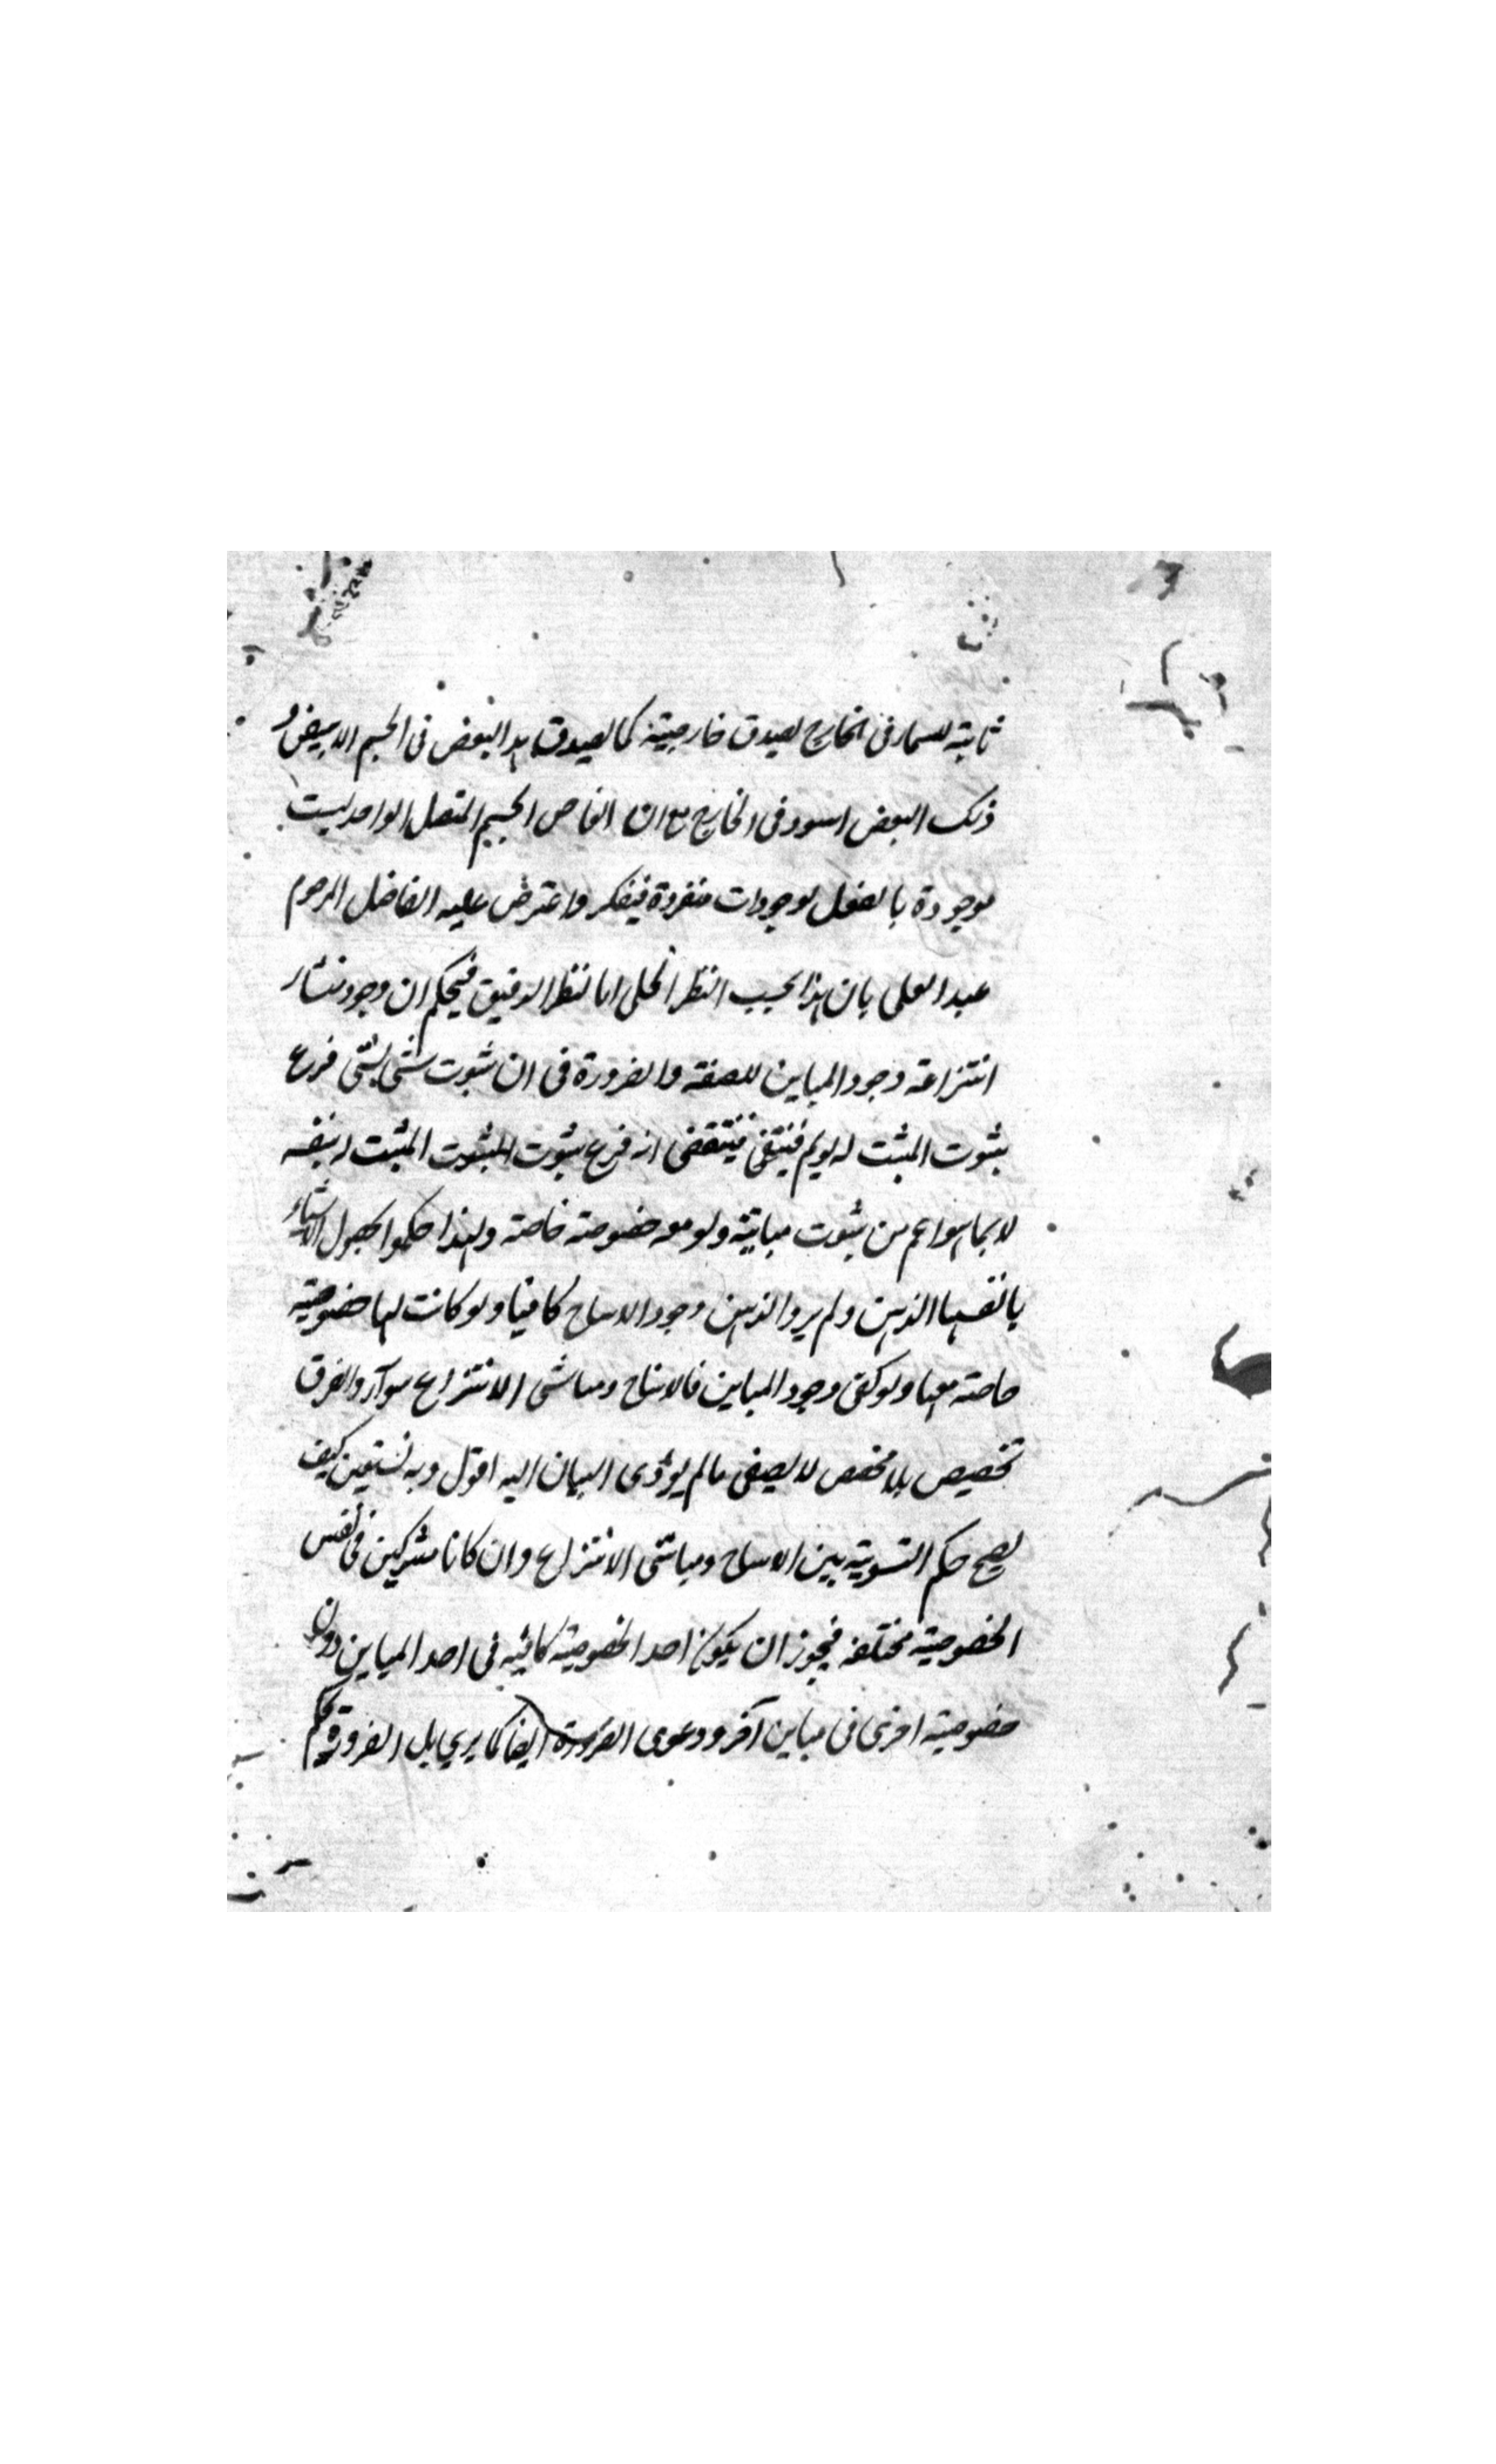 ثابتة للسماء فى الخارج لصدق خارجية كما لصدق هذا البعض فى الجسم الابيض و
ذلك البعض اسود فى الخارج مع ان ابعاض الجسم المتصل الواحد ليست
موجودة بالفعل لوجودات منفردة فيفكر واعترض عليه الفاضل المرحوم
عبد العلى بان هذا بحسب النظر الجلى اما النظر الدقيق فيحكم ان وجود منشار
انتزاعه وجود المباين للصفة والضرورة فى ان ثبوت شئ لشئ فرع
ثبوت المثبت له لو لم فينتقض انه فرع ثبوت المثبت له بنفسه
لا بما هو اعم من ثبوت مباينة ولو معه خصوصة خاصة ولهذا حكموا بحصول الاشياء
بانفسها الذهن ولم يروا الذهن وجود الاشباح كافيا ولو كانت لها خصوصية
خاصة معها ولو كفى وجود المباين فالاشباح ومناشى الانتزاع سواء والفرق
تخصيص بلا مخصص لا يصغى مالم يؤدى البيان اليه اقول وبه نستعين كيف
يصح حكم التسوية بين الاشباح ومناشى الانتزاع وان كانا مشركين فى نفس
الخصوصية مختلفه فيجوز ان يكون احد الخصوصية كافية فى احد المباين دون
خصوصية اخرى فى مباين آخر ودعوى الضرورة ايضا كما يرى بل الضرورة يحكم